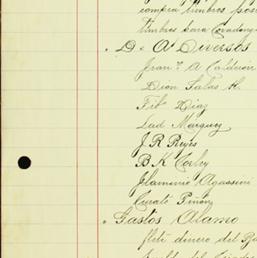 compra timbres pos
timbres para
" D. a A Diversos
Juan F. A Calderón
Dion Salas H.
Fito Diaz
Lad Marquez
J. R Reyes
B. K Corley
Flaminio Agasseni
Curato Pinos
" Gastos Alamo
flete dinero del